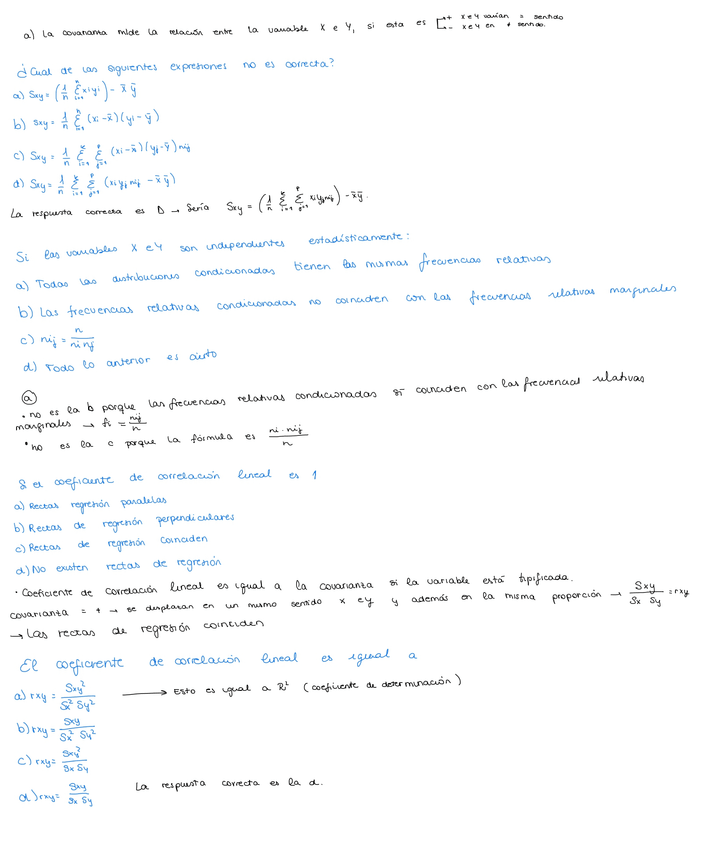 a) La covarianza mide la relación entre la variable X e Y, si esta es [+ x e y varían = sentido
- x e y en ≠ sentido.
¿Cual de las siguientes expresiones no es correcta?
a) Sxy = (1/n Σ_{i=1}^{n} xi yi) - x̄ ȳ
b) sxy = 1/n Σ_{i=1}^{n} (xi - x̄)(yi - ȳ)
c) Sxy = 1/n Σ_{i=1}^{k} Σ_{j=1}^{p} (xi - x̄)(yj - ȳ) nij
d) Sxy = 1/n Σ_{i=1}^{k} Σ_{j=1}^{p} (xi yj nij - x̄ ȳ)
La respuesta correcta es D → Sería Sxy = (1/n Σ_{i=1}^{k} Σ_{j=1}^{p} xi yj nij) - x̄ȳ.
Si las variables X e Y son independientes estadísticamente:
a) Todas las distribuciones condicionadas tienen las mismas frecuencias relativas
b) Las frecuencias relativas condicionadas no coinciden con las frecuencias relativas marginales
c) nij = n / ni nj
d) Todo lo anterior es cierto
(a)
· no es la b porque las frecuencias relativas condicionadas sí coinciden con las frecuencias relativas
marginales → fi = nij / n
· no es la c porque la fórmula es ni · nij / n
Si el coeficiente de correlación lineal es 1
a) Rectas regresión paralelas
b) Rectas de regresión perpendiculares
c) Rectas de regresión coinciden
d) No existen rectas de regresión
· Coeficiente de correlación lineal es igual a la covarianza si la variable está tipificada.
covarianza = + → se desplazan en un mismo sentido x e y y además en la misma proporción → Sxy / Sx Sy = rxy
→ Las rectas de regresión coinciden
El coeficiente de correlación lineal es igual a
a) rxy = Sxy² / Sx² Sy² → Esto es igual a R² (coeficiente de determinación)
b) rxy = Sxy / Sx² Sy²
c) rxy = Sxy² / Sx Sy
d) rxy = Sxy / Sx Sy La respuesta correcta es la d.